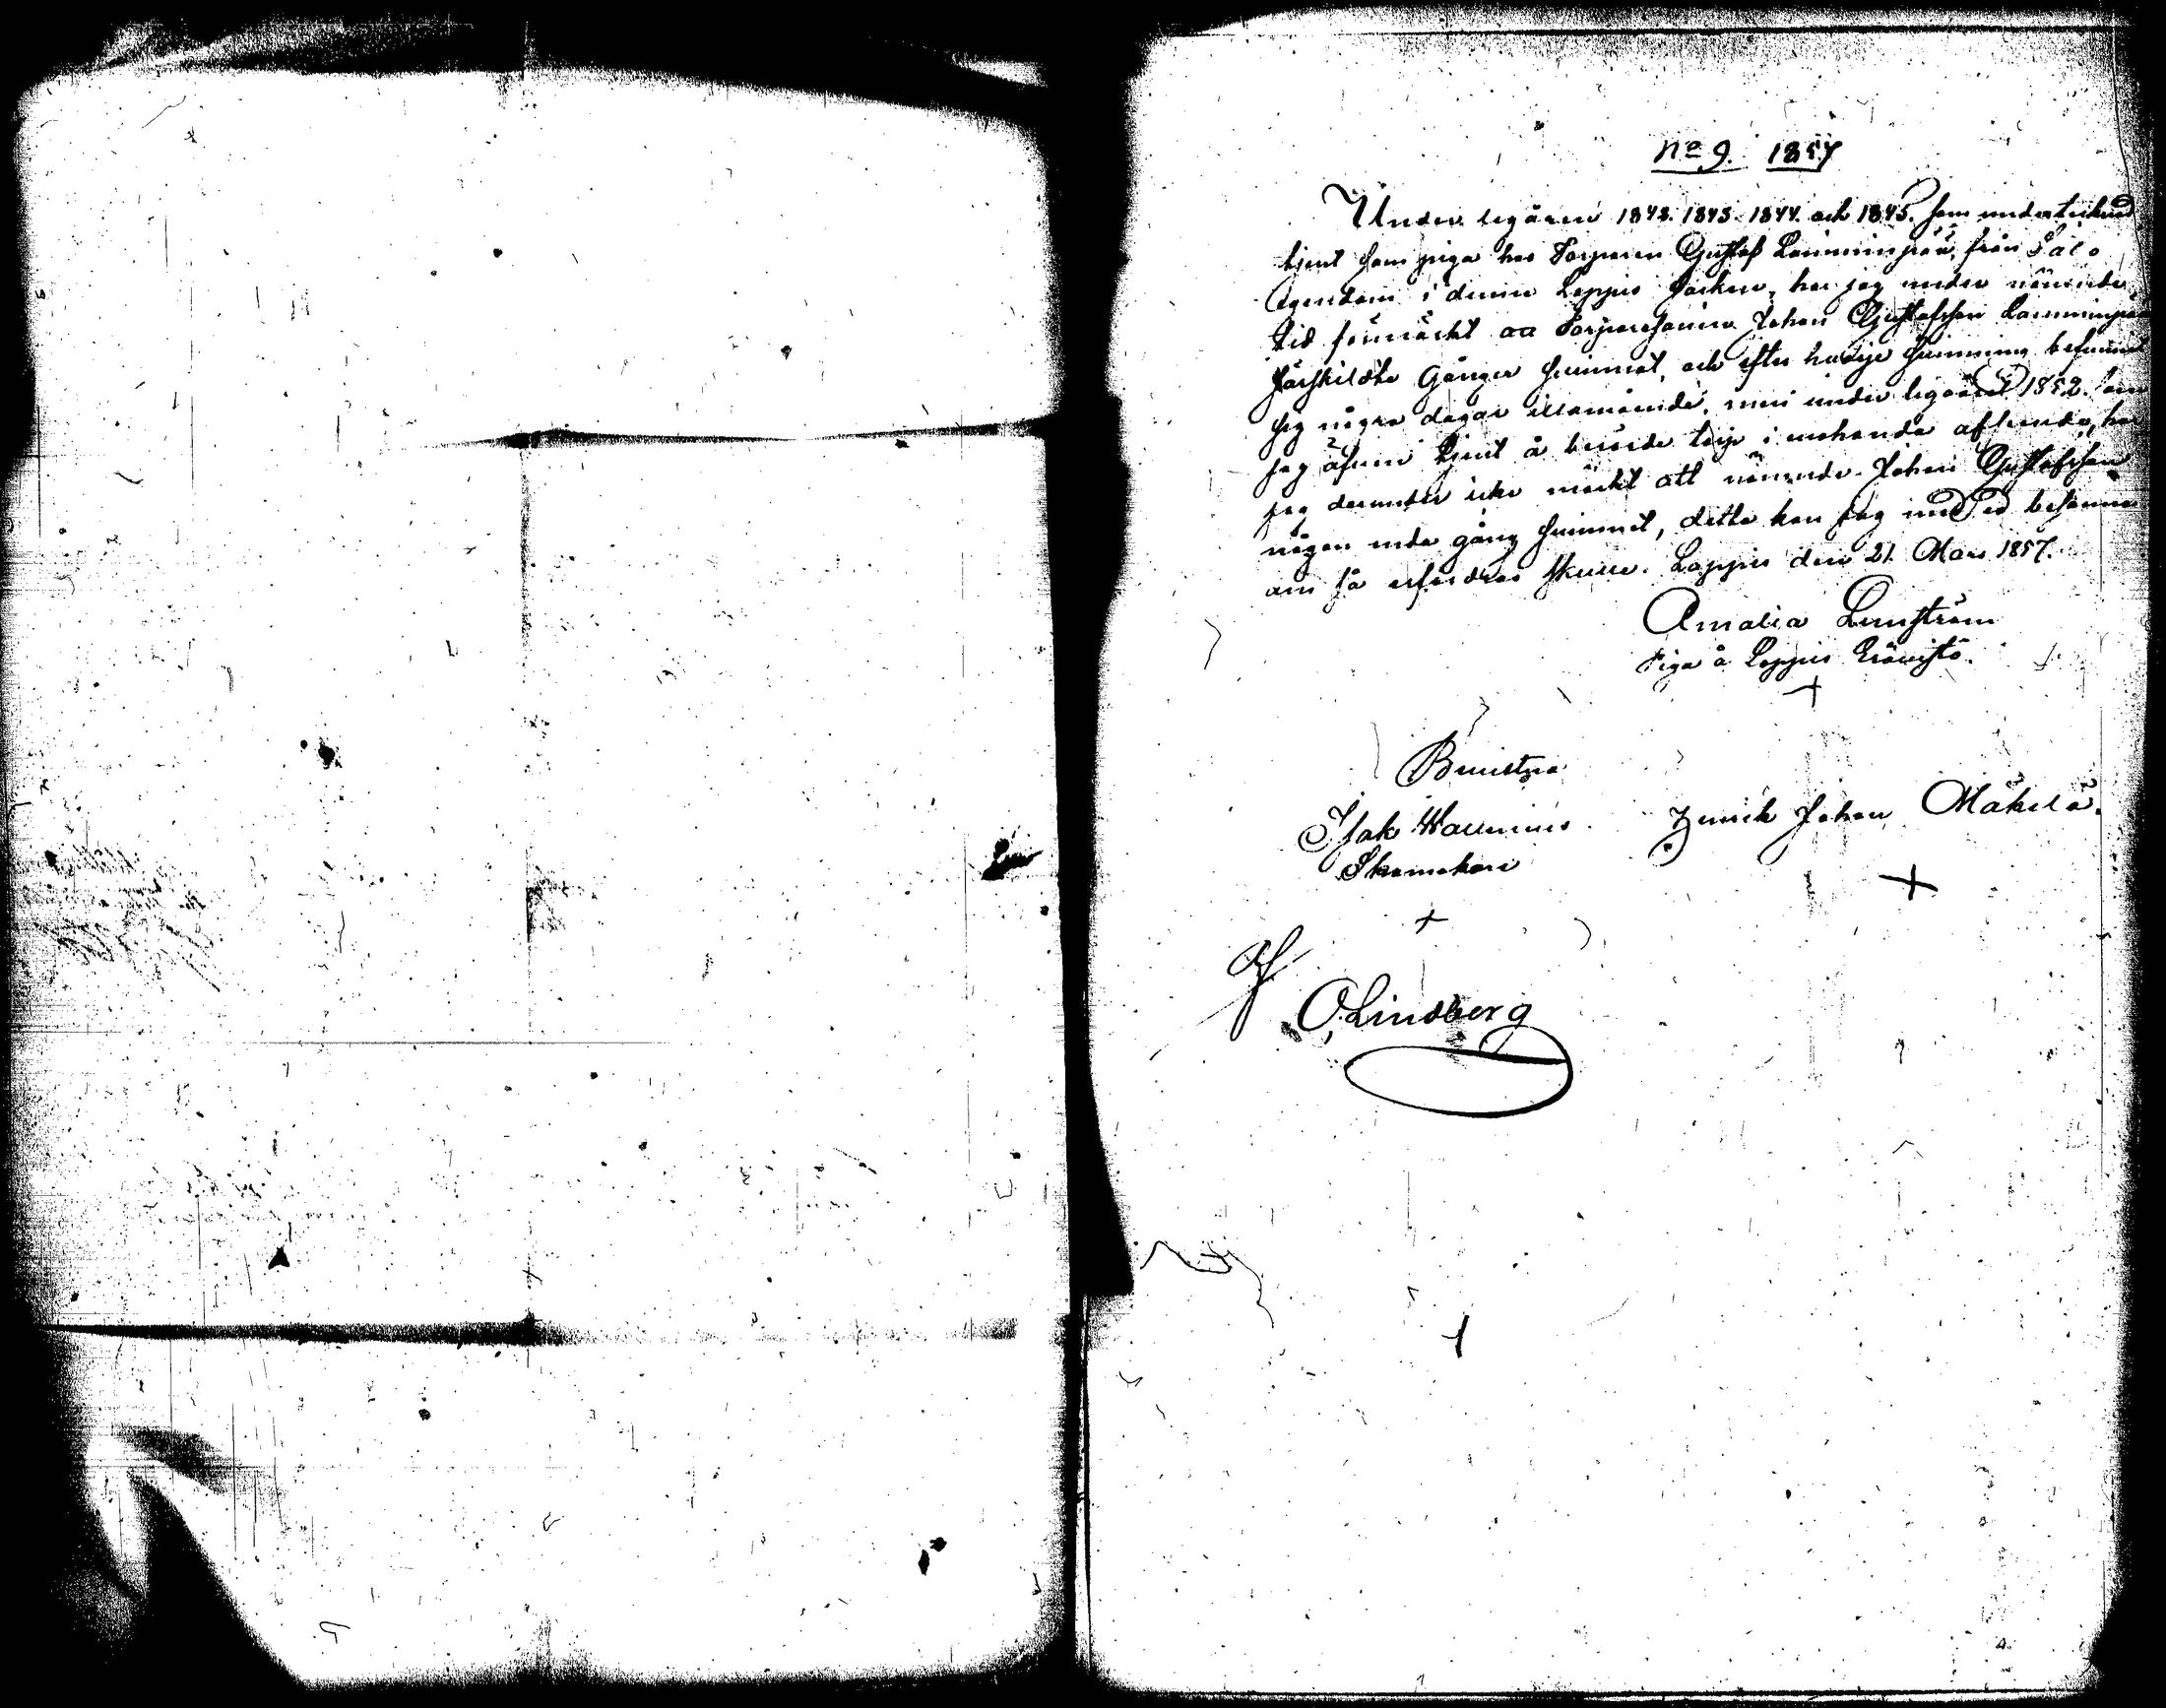 No 9. 1857
Under legåren 1842. 1843. 1844. och 1845. som undertecknad
tjent som piga hos Torparen Gustaf Lamminpää, från Salo
Egendom i denna Loppis Socken, har jag under nämnde
tid förmärkt aa Torparesonen Johan Gustafsson Lamminpää
särskildta Gånger svimmat, och efter hvarje svimning befunnit
sig några dagar illamående, men under legoåret 1852. som
jag äfven tjent å berörde torp i enahanda afseende, har
jag derunder icke märkt att nämnde Johan Gustafsson
någon enda gång svimmat, detta kan jag med ed besanna
om så erfordras skulle. Loppis den 21 Mars 1857.
Amalia Lunström
Piga å Loppis Eräwistö.
Bevittna
Isak Hallenius Henrik Johan Mäkelä.
Skomakare
Af
O. Lindberg